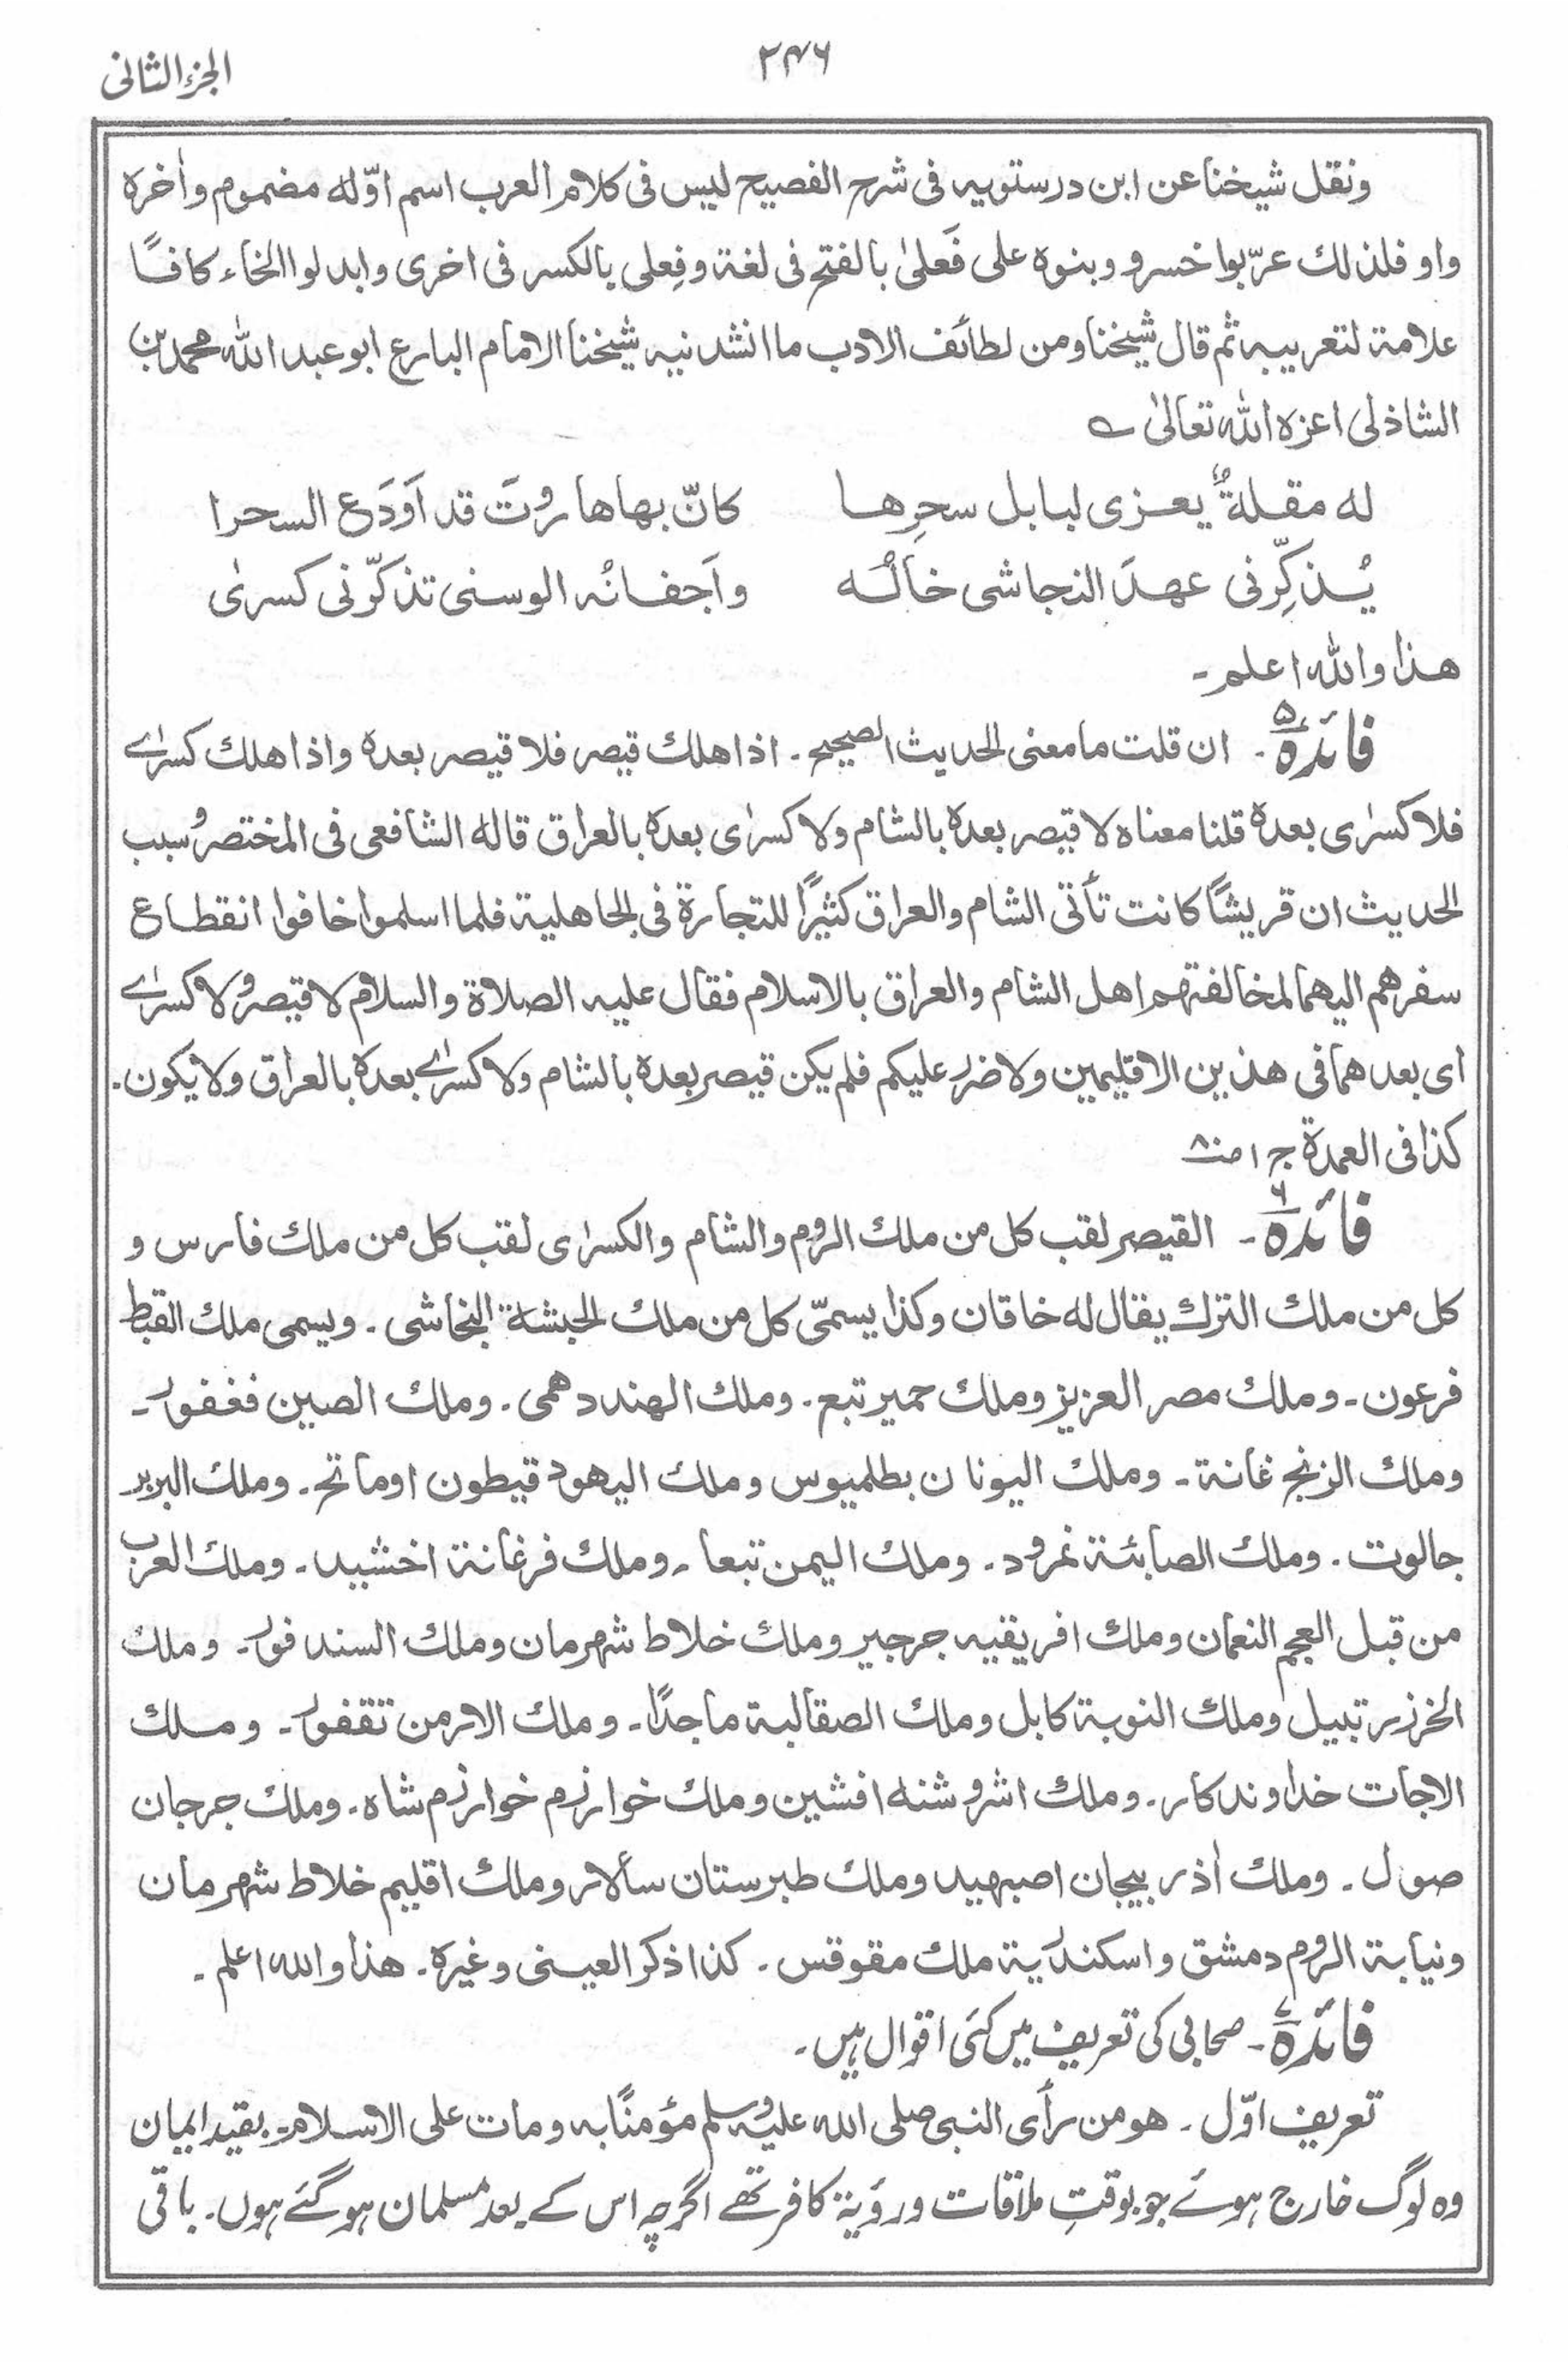 الجزء الثانی
۲۴۶
ونقل شیخنا عن ابن درستویه فی شرح الفصیح لیس فی کلام العرب اسم اوّله مضموم وأخره
واو فلذلك عرّبوا خسرو وبنوه علی فَعلیٰ بالفتح فی لغة وفِعلی بالکسر فی اخری وابدلوا الخاء کافًا
علامة لتعریبه ثم قال شیخنا ومن لطائف الادب ما انشدنیه شیخنا الامام البارع ابو عبد الله محمد بن
الشاذلی اعزه الله تعالیٰ ؎
له مقلةٌ یعزی لبابل سحرِها کانّ بها هاروتَ قد اَودَع السحرا
یُذکِّرنی عهدَ النجاشی خالُه واَجفانُه الوسنی تذکّرنی کسریٰ
هذا والله اعلم۔
فائدہ ۵۔ ان قلت ما معنی الحدیث الصحیح۔ اذا هلك قیصر فلا قیصر بعدہ واذا هلك کسرٰے
فلا کسرٰی بعدہ قلنا معناہ لا قیصر بعدہ بالشام ولا کسرٰی بعدہ بالعراق قاله الشافعی فی المختصر وسبب
الحدیث ان قریشًا کانت تأتی الشام والعراق کثیرًا للتجارة فی الجاهلیة فلما اسلموا خافوا انقطاع
سفرهم الیهما لمخالفتهم اهل الشام والعراق بالاسلام فقال علیه الصلاة والسلام لا قیصر ولا کسرٰے
ای بعدهما فی هذین الاقلیمین ولا ضرر علیکم فلم یکن قیصر بعدہ بالشام ولا کسرٰے بعدہ بالعراق ولا یکون۔
کذا فی العمدة ج ۱ ص۸۰
فائدہ ۶۔ القیصر لقب کل من ملك الروم والشام والکسرٰی لقب کل من ملك فارس و
کل من ملك الترك یقال له خاقان وکذا یسمّی کل من ملك الحبشة النجاشی۔ ویسمی ملك القبط
فرعون۔ وملك مصر العزیز وملك حمیر تبع۔ وملك الهند دهمی۔ وملك الصین فغفور۔
وملك الزنج غانة۔ وملك الیونان بطلمیوس وملك الیهود قیطون او ماتح۔ وملك البربر
جالوت۔ وملك الصابئة نمرود۔ وملك الیمن تبعا۔ وملك فرغانة اخشید۔ وملك العرب
من قبل العجم النعمان وملك افریقیه جرجیر وملك خلاط شهرمان وملك السند فور۔ وملك
الخزر رتبیل وملك النوبة کابل وملك الصقالبة ماجدًا۔ وملك الارمن تقفور۔ وملك
الاجات خداوند کار۔ وملك اشروشنه افشین وملك خوارزم خوارزم شاہ۔ وملك جرجان
صول۔ وملك أذربیجان اصبهبید وملك طبرستان سألار وملك اقلیم خلاط شهرمان
ونیابة الروم دمشق واسکندریة ملك مقوقس۔ کذا ذکر العینی وغیرہ۔ هذا والله اعلم۔
فائدہ ۷۔ صحابی کی تعریف میں کئی اقوال ہیں۔
تعریف اوّل۔ هو من رأی النبی صلی الله علیه وسلم مؤمنًا به ومات علی الاسلام۔ بقید ایمان
وہ لوگ خارج ہوئے جو بوقتِ ملاقات و رؤیة کافر تھے اگرچہ اس کے بعد مسلمان ہو گئے ہوں۔ باقی